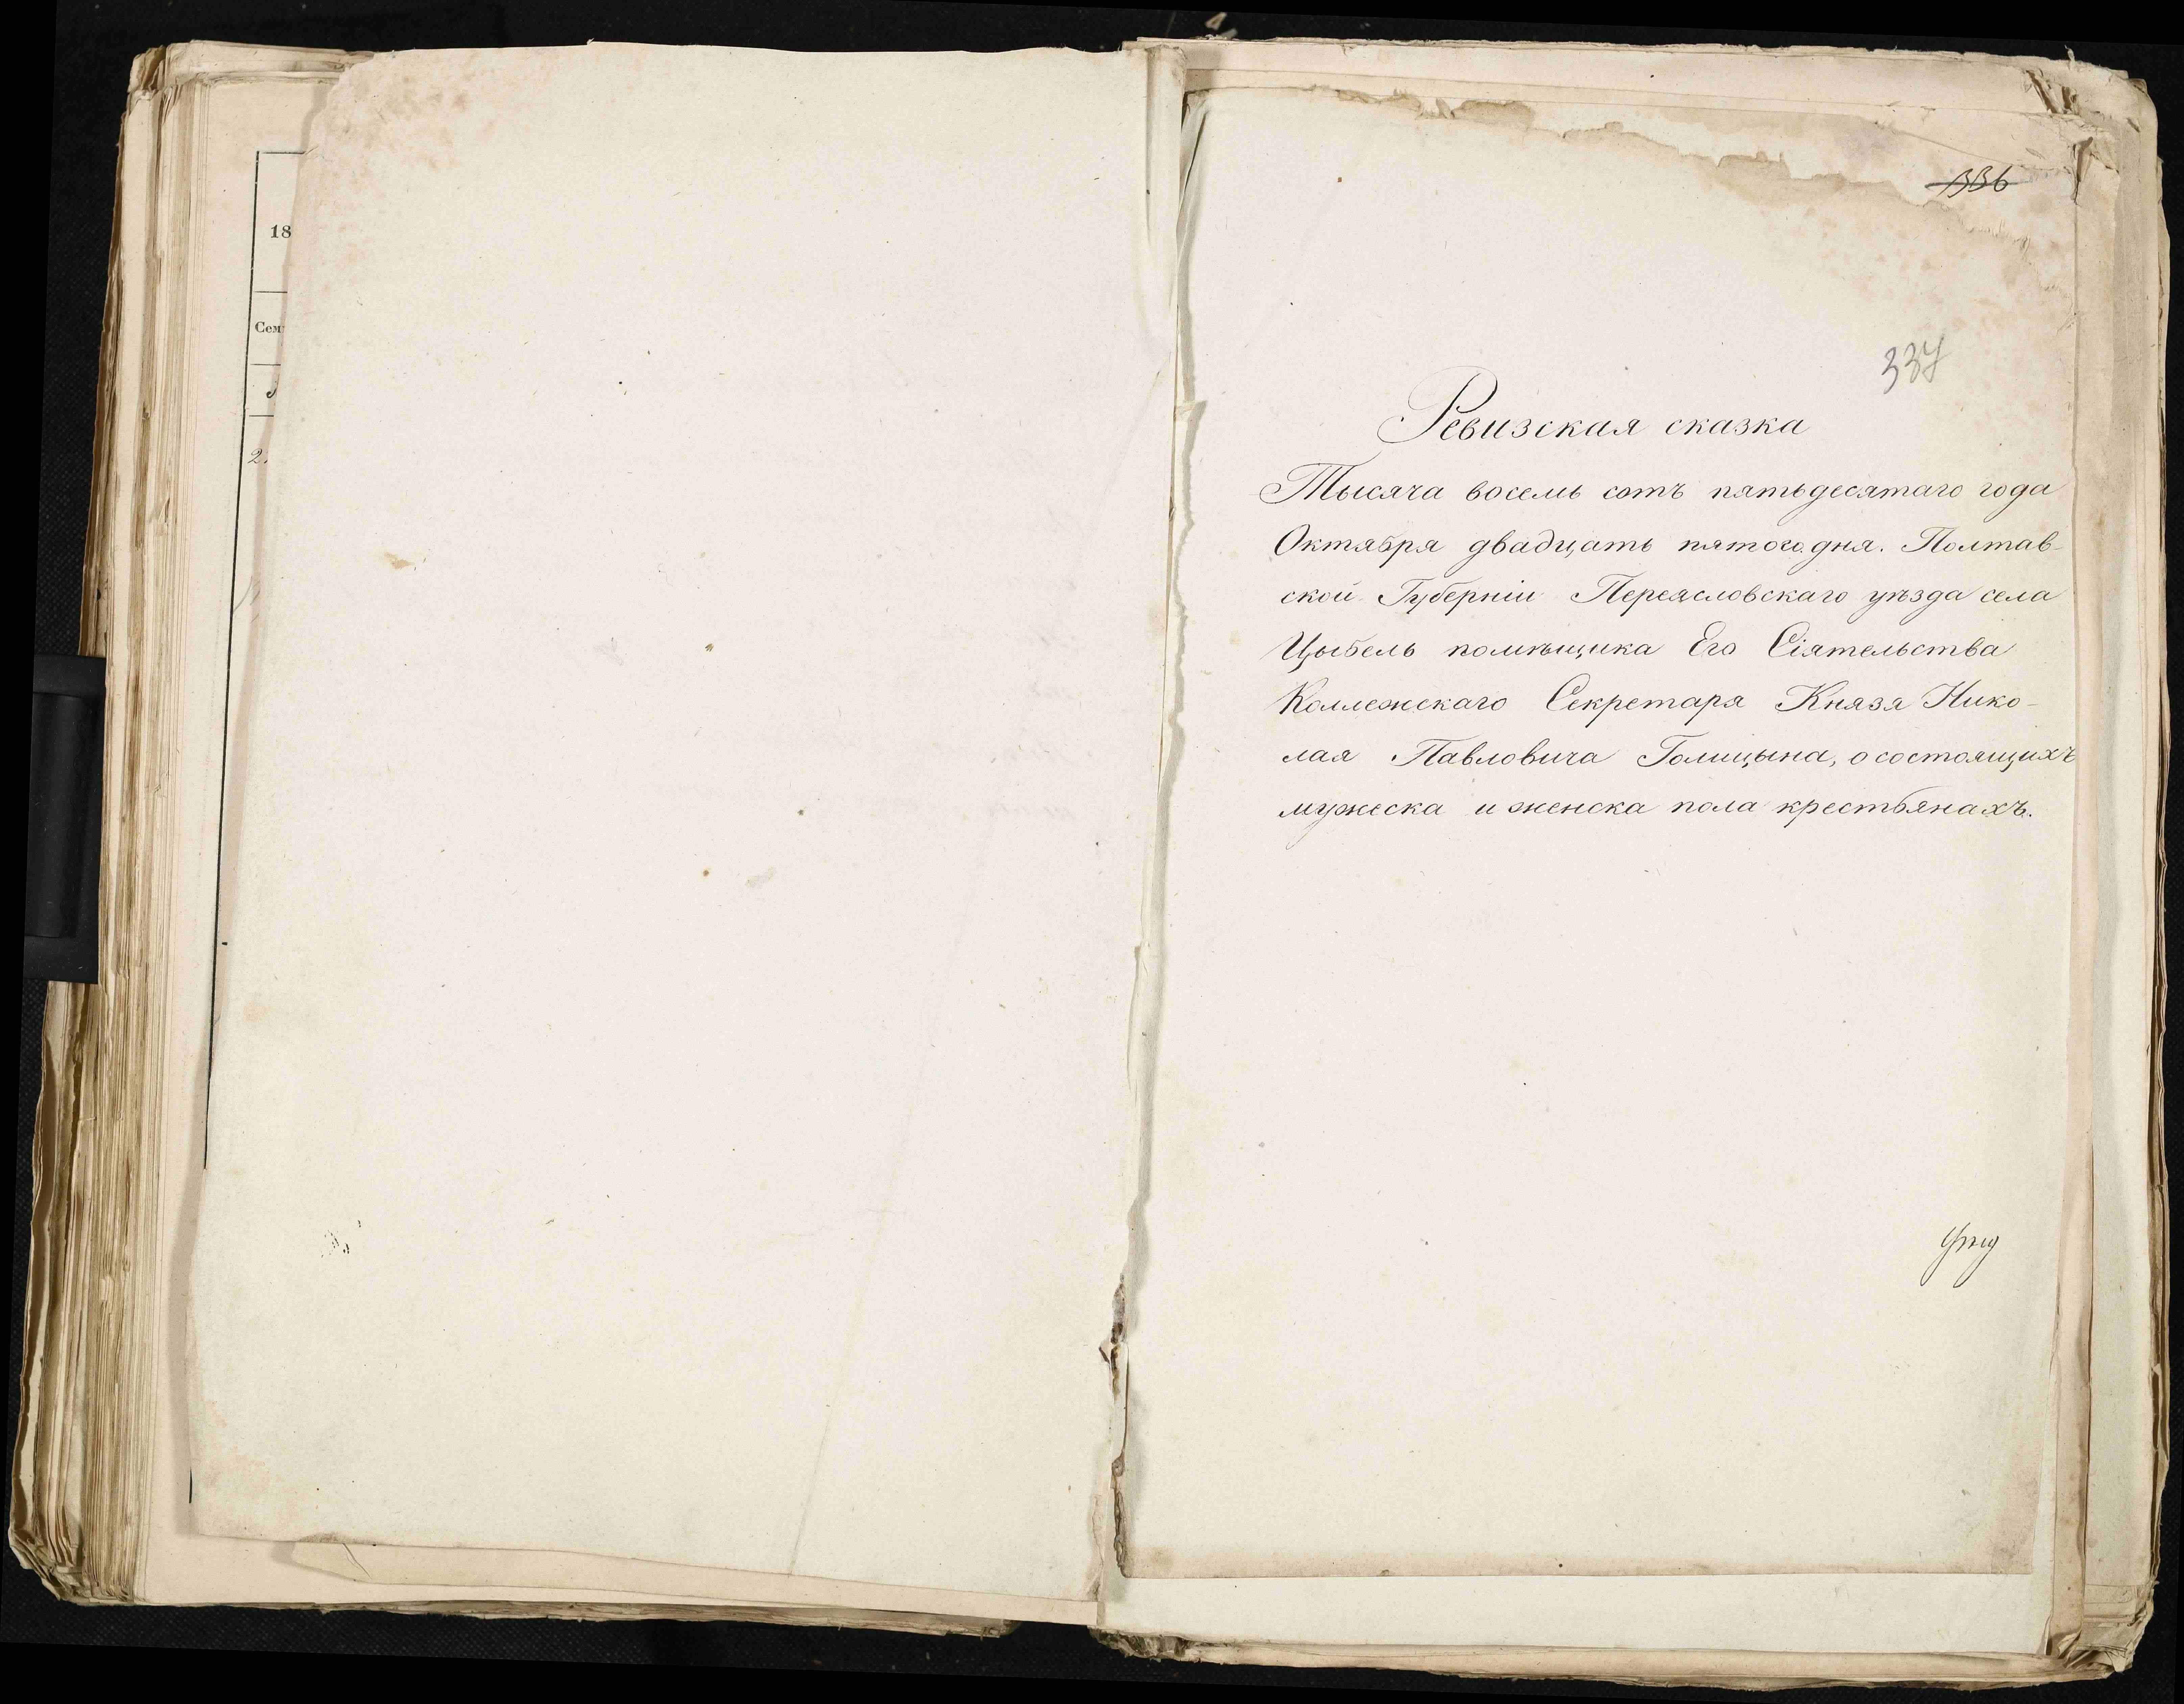 18
Сем
2.
336
337
Ревизская сказка
Тысяча восемь сотъ пятьдесятаго года
Октября двадцать пятого дня. Полтав-
ской Губерніи Переясловскаго уѣзда села
Цыбель помѣщика Его Сіятельства
Коллежскаго Секретаря Князя Нико-
лая Павловича Голицына, о состоящихъ
мужеска и женска пола крестьянахъ.